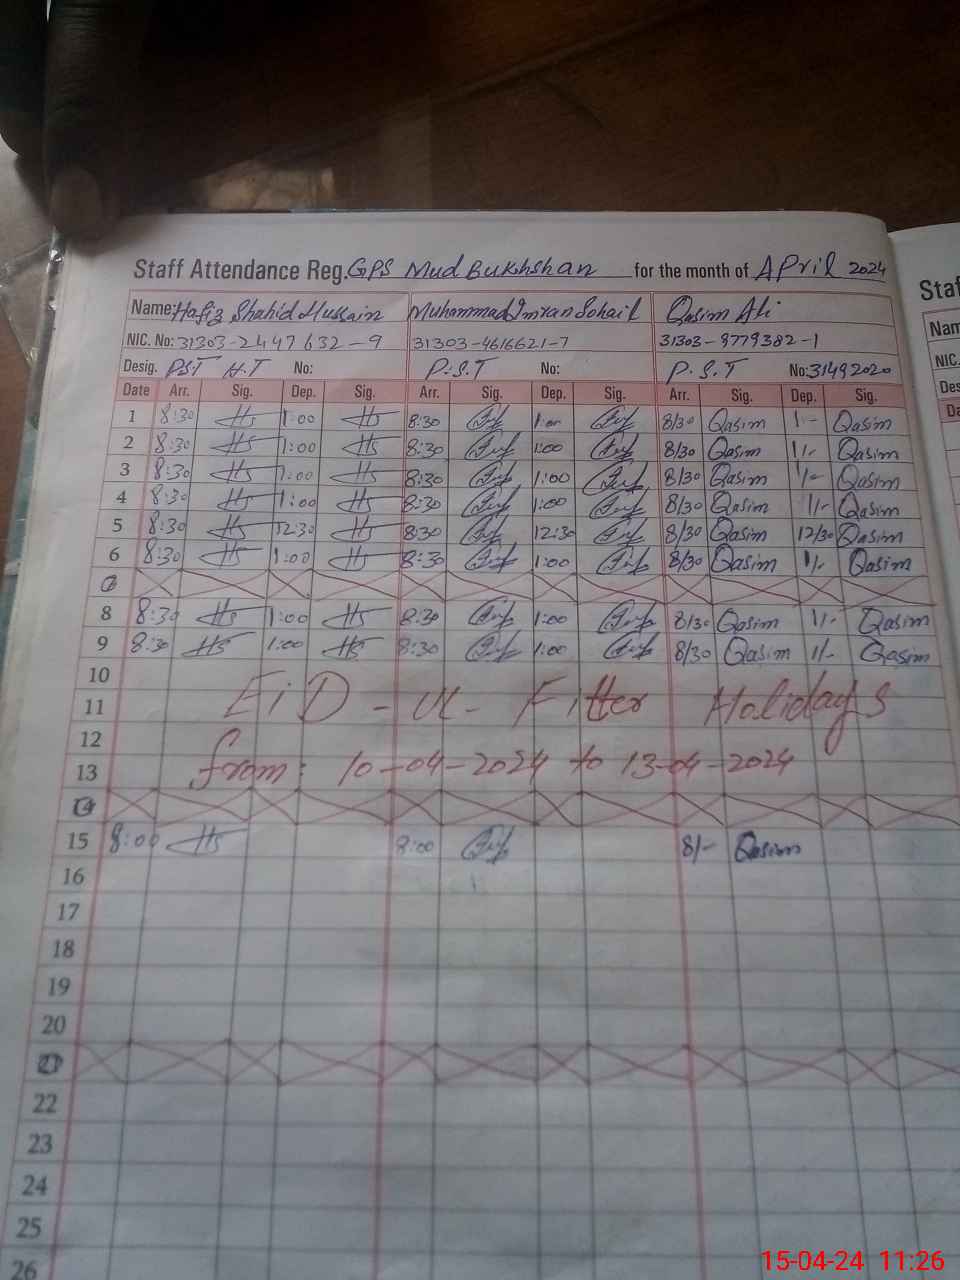 Staff Attendance Reg. GPS Mud Bukhshan for the month of April 2024
Name: Hafiz Shahid Hussain Muhammad Imran Sohail Qasim Ali
NIC. No: 31303-2447632-9 31303-4616621-7 31303-9779382-1
Desig. PST H.T No: P.S.T No: P.S.T No: 31492020
Date Arr. Sig. Dep. Sig. Arr. Sig. Dep. Sig. Arr. Sig. Dep. Sig.
1 8:30 HS 1:00 HS 8:30 1:00 8/30 Qasim 1/- Qasim
2 8:30 HS 1:00 HS 8:30 1:00 8/30 Qasim 1/- Qasim
3 8:30 HS 1:00 HS 8:30 1:00 8/30 Qasim 1/- Qasim
4 8:30 HS 1:00 HS 8:30 1:00 8/30 Qasim 1/- Qasim
5 8:30 HS 12:30 HS 8:30 12:30 8/30 Qasim 12/30 Qasim
6 8:30 HS 1:00 HS 8:30 1:00 8/30 Qasim 1/- Qasim
7
8 8:30 HS 1:00 HS 8:30 1:00 8/30 Qasim 1/- Qasim
9 8:30 HS 1:00 HS 8:30 1:00 8/30 Qasim 1/- Qasim
10
11 EiD-ul-Fitter Holidays
12
13 from: 10-04-2024 to 13-04-2024
14
15 8:00 HS 8:00 8/- Qasim
16
17
18
19
20
21
22
23
24
25
26
Staf
Nam
NIC.
Des
Da
15-04-24 11:26